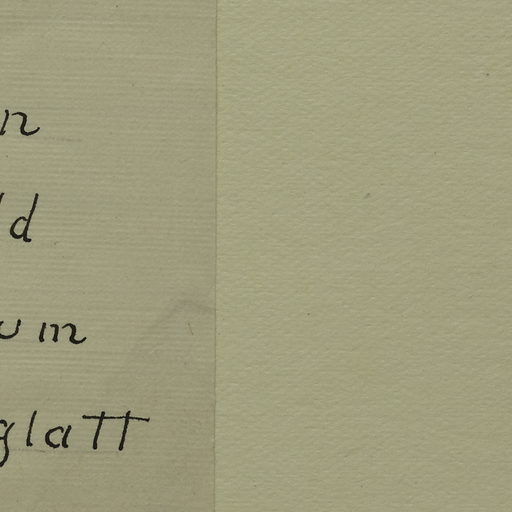 n
d
um
glatt